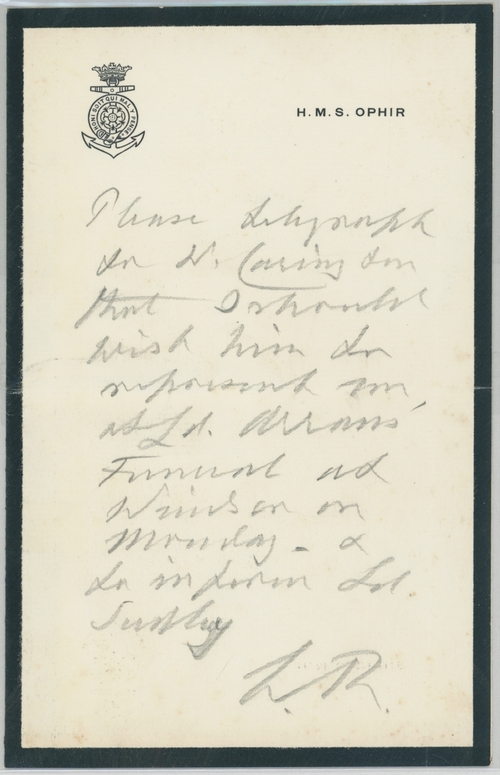 HONI SOIT QUI MAL Y PENSE
H.M.S. OPHIR
Please telegraph
to W. Carington
that I should
wish him to
represent me
at Ld. Arrans'
Funeral at
Windsor on
Monday - &
to inform Ld
Sudley